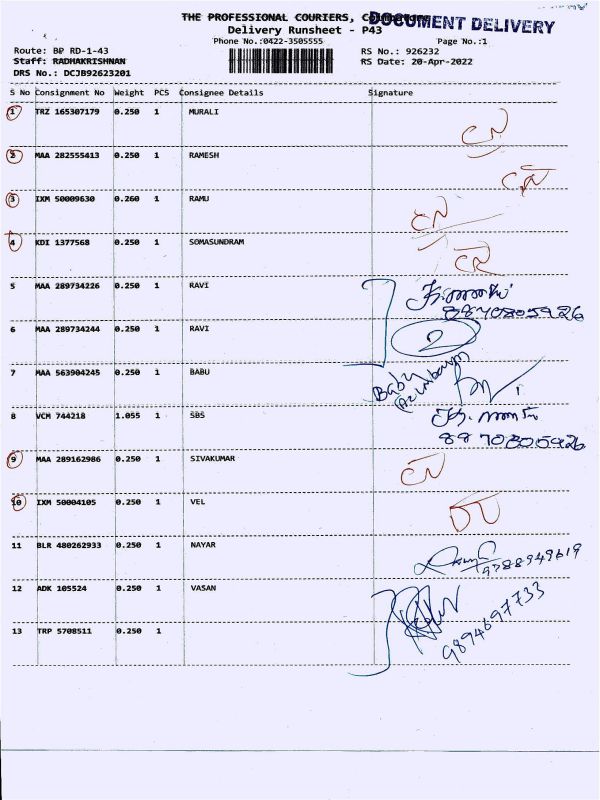 THE PROFESSIONAL COURIERS, Coimbatore
DOCUMENT DELIVERY
Delivery Runsheet - P43
Phone No.:0422-3505555 Page No.:1
Route: BP RD-1-43 RS No.: 926232
Staff: RADHAKRISHNAN RS Date: 20-Apr-2022
DRS No.: DCJB92623201
S No Consignment No Weight PCS Consignee Details Signature
1 TRZ 165307179 0.250 1 MURALI
2 MAA 282555413 0.250 1 RAMESH
3 IXM 50009630 0.260 1 RAMU
4 KDI 1377568 0.250 1 SOMASUNDRAM
5 MAA 289734226 0.250 1 RAVI
8870805926
6 MAA 289734244 0.250 1 RAVI 2
7 MAA 563904245 0.250 1 BABU Babu
8 VCM 744218 1.055 1 SBS
8870805926
9 MAA 289162986 0.250 1 SIVAKUMAR
10 IXM 50004105 0.250 1 VEL
11 BLR 480262933 0.250 1 NAYAR 9788949619
12 ADK 105524 0.250 1 VASAN
9894697733
13 TRP 5708511 0.250 1